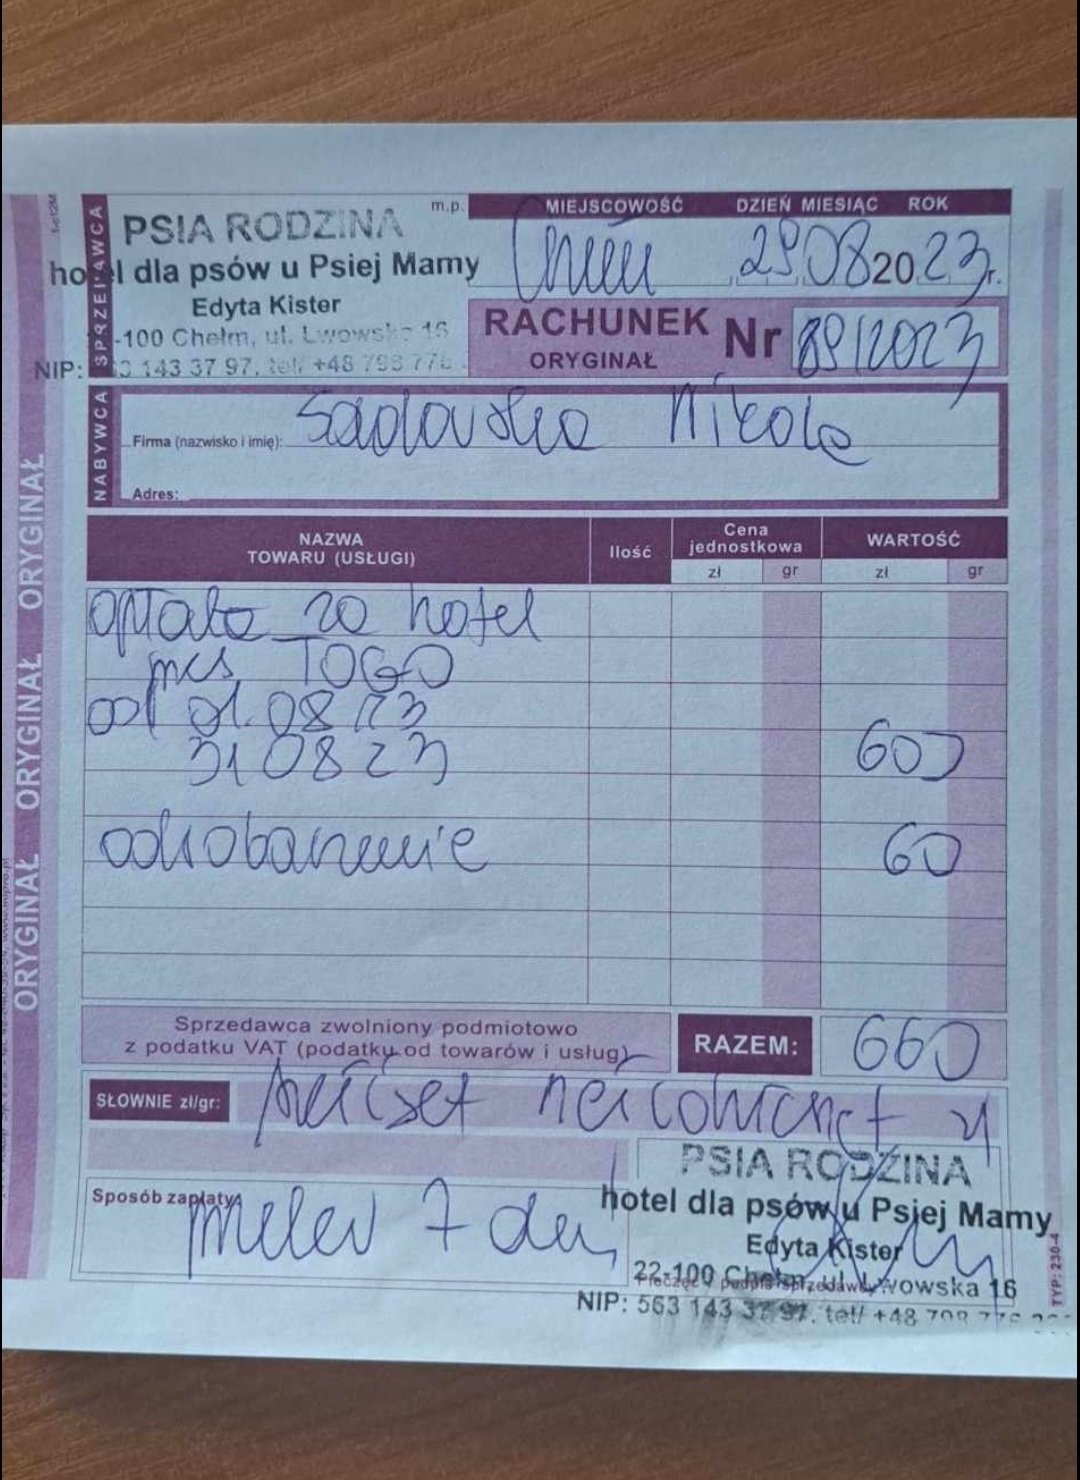 PSIA RODZINA
m.p.
hotel dla psów u Psiej Mamy
Edyta Kister
-100 Chełm, ul. Lwowska 16
NIP: 143 37 97, tel/ +48 798 776
SPRZEDAWCA
MIEJSCOWOŚĆ DZIEŃ MIESIĄC ROK
Chełm 29.08 2023 r.
RACHUNEK Nr 89/2023
ORYGINAŁ
NABYWCA
Firma (nazwisko i imię): Sadowska Nikola
Adres:
NAZWA
TOWARU (USŁUGI)
Ilość
Cena
jednostkowa
WARTOŚĆ
zł gr zł gr
opłata za hotel
psa TOGO
od 01.08 23
31 08 23 600
odrobaczenie 60
Sprzedawca zwolniony podmiotowo
z podatku VAT (podatku od towarów i usług)
RAZEM: 660
SŁOWNIE zł/gr: sześćset sześćdziesiąt zł
Sposób zapłaty: przelew 7 dni
PSIA RODZINA
hotel dla psów u Psiej Mamy
Edyta Kister
22-100 Chełm, ul. Lwowska 16
NIP: 563 143 37 97, tel/ +48 798 776
TYP: 230-4
ORYGINAŁ ORYGINAŁ ORYGINAŁ